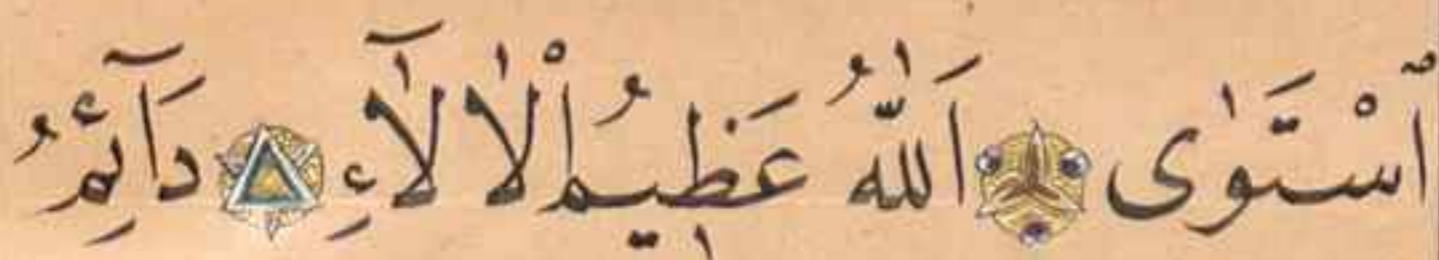 ٱسْتَوٰى ۞ اَللّٰهُ عَظِيمُ الْاٰلَآءِ ۞ دَآئِمُ